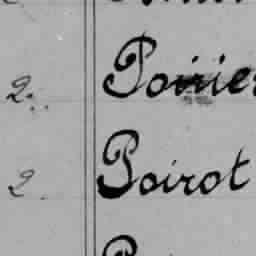 2. Poirier
2. Poirot